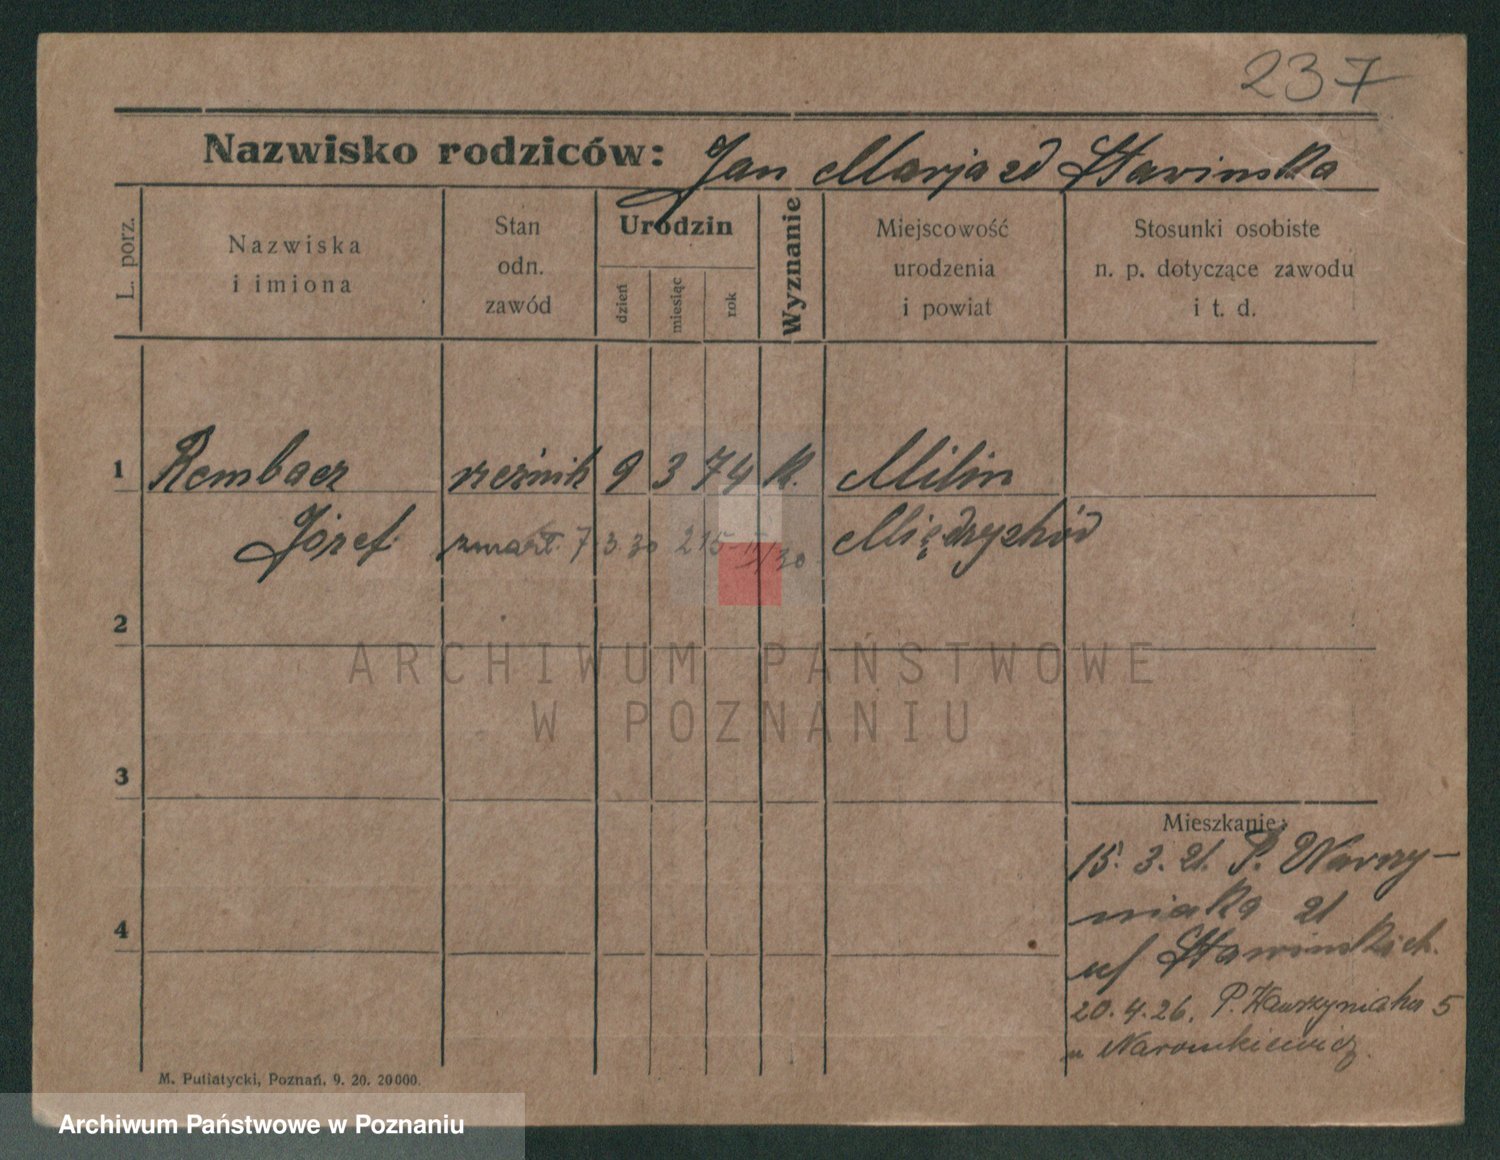 237
Nazwisko rodziców: Jan Marja zd Sławinska
L. porz.
Nazwiska i imiona
Stan odn. zawód
Urodzin
dzień
miesiąc
rok
Wyznanie
Miejscowość urodzenia i powiat
Stosunki osobiste n. p. dotyczące zawodu i t. d.
1 Rembacz rzeźnik 9 3 74 k. Milin
Józef zmarł. 7 3 30 Międzychód
2
3
4
Mieszkanie:
15. 3. 21. P. Wawrzy-
niaka 21
u/ Sławinskich.
20. 4. 26. P. Wawrzyniaka 5
u
M. Putiatycki, Poznań, 9. 20. 20000.
ARCHIWUM PAŃSTWOWE
W POZNANIU
Archiwum Państwowe w Poznaniu